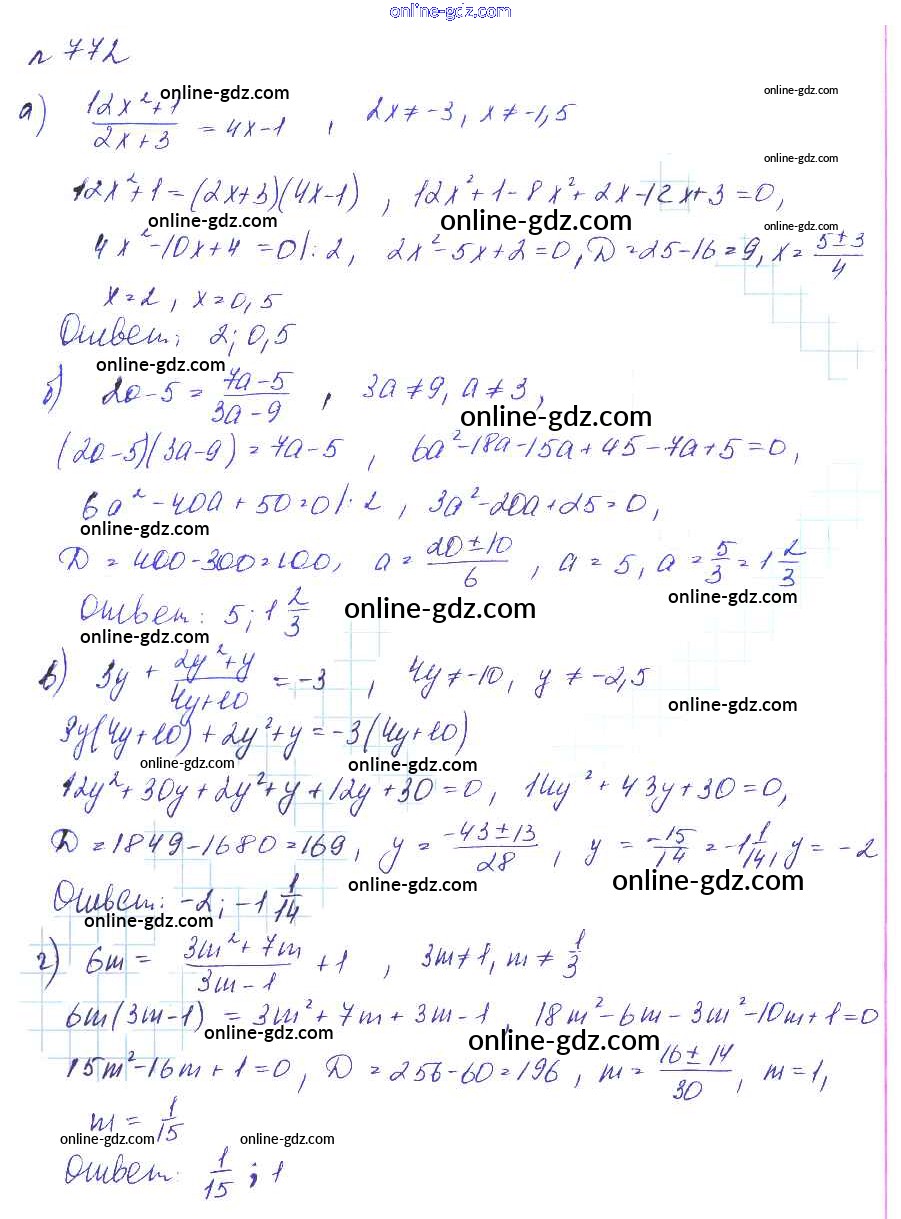 online-gdz.com
№ 772
а) (12x²+1)/(2x+3) = 4x-1 , 2x ≠ -3, x ≠ -1,5
online-gdz.com online-gdz.com
online-gdz.com
12x²+1 = (2x+3)(4x-1) , 12x²+1-8x²+2x-12x+3=0,
online-gdz.com online-gdz.com online-gdz.com
4x²-10x+4=0 |:2, 2x²-5x+2=0, D=25-16=9, x=(5±3)/4
x=2, x=0,5
Ответ: 2; 0,5
online-gdz.com online-gdz.com
б) 2a-5 = (7a-5)/(3a-9) , 3a≠9, a≠3,
online-gdz.com
(2a-5)(3a-9)=7a-5 , 6a²-18a-15a+45-7a+5=0,
6a²-40a+50=0 |:2 , 3a²-20a+25=0,
online-gdz.com
D=400-300=100, a=(20±10)/6 , a=5, a=5/3=1 2/3
Ответ: 5; 1 2/3
online-gdz.com online-gdz.com
online-gdz.com
в) 3y + (2y²+y)/(4y+10) = -3 , 4y≠-10, y≠-2,5
online-gdz.com
3y(4y+10)+2y²+y=-3(4y+10)
online-gdz.com online-gdz.com
12y²+30y+2y²+y+12y+30=0, 14y²+43y+30=0,
D=1849-1680=169, y=(-43±13)/28 , y=-15/14=-1 1/14, y=-2
Ответ: -2; -1 1/14
online-gdz.com online-gdz.com
online-gdz.com
г) 6m = (3m²+7m)/(3m-1) + 1 , 3m≠1, m≠1/3
6m(3m-1) = 3m²+7m+3m-1 , 18m²-6m-3m²-10m+1=0
online-gdz.com online-gdz.com
15m²-16m+1=0, D=256-60=196, m=(16±14)/30 , m=1,
m=1/15
online-gdz.com online-gdz.com
Ответ: 1/15 ; 1